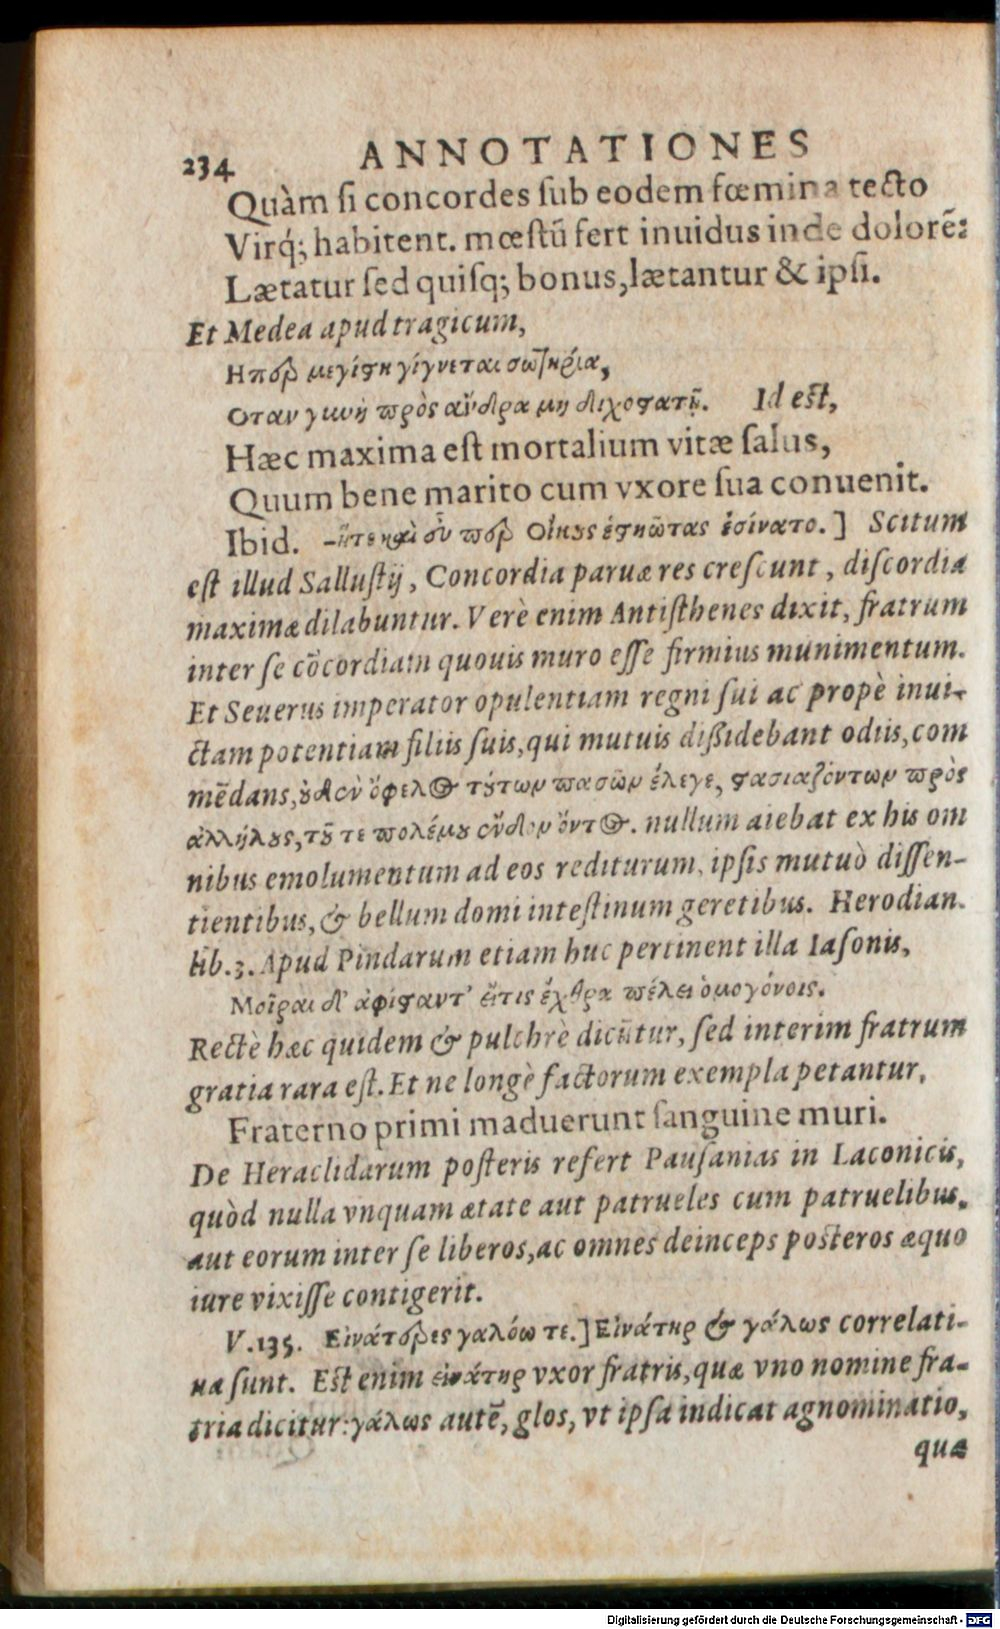 234 ANNOTATIONES
Quàm si concordes sub eodem fœmina tecto
Virq́; habitent. mœstũ fert inuidus inde dolorẽ:
Lætatur sed quisq; bonus, lætantur & ipsi.
Et Medea apud tragicum,
Ηπερ μεγίστη γίγνεται σωτηρία,
Οταν γυνὴ πρὸς ἄνδρα μὴ διχοστατῇ. Id est,
Hæc maxima est mortalium vitæ salus,
Quum bene marito cum vxore sua conuenit.
Ibid. ἐσίνατο.] Scitum
est illud Sallustij, Concordia paruæ res crescunt, discordia
maximæ dilabuntur. Verè enim Antisthenes dixit, fratrum
inter se cōcordiam quouis muro esse firmius munimentum.
Et Seuerus imperator opulentiam regni sui ac propè inui-
ctam potentiam filiis suis, qui mutuis dißidebant odiis, com
mẽdans, οὐδὲν ὄφελος τούτων πασῶν ἔλεγε, στασιαζόντων πρὸς
ἀλλήλους, τοῦ τε πολέμου ἔνδον ὄντος. nullum aiebat ex his om
nibus emolumentum ad eos rediturum, ipsis mutuò dissen-
tientibus, & bellum domi intestinum geretibus. Herodian.
lib. 3. Apud Pindarum etiam huc pertinent illa Iasonis,
Μοῖραι δ' ἀφίσταντ' εἴτις ἔχθρα πέλει ὁμογόνοις.
Rectè hæc quidem & pulchrè dicũtur, sed interim fratrum
gratia rara est. Et ne longè factorum exempla petantur,
Fraterno primi maduerunt sanguine muri.
De Heraclidarum posteris refert Pausanias in Laconicis,
quòd nulla vnquam ætate aut patrueles cum patruelibus,
aut eorum inter se liberos, ac omnes deinceps posteros æquo
iure vixisse contigerit.
V. 135. Εἰνάτερες γαλόω τε.] Εἰνάτηρ & γάλως correlati-
uæ sunt. Est enim εἰνάτηρ vxor fratris, quæ vno nomine fra-
tria dicitur: γάλως autẽ, glos, vt ipsa indicat agnominatio,
quæ
Digitalisierung gefördert durch die Deutsche Forschungsgemeinschaft - DFG